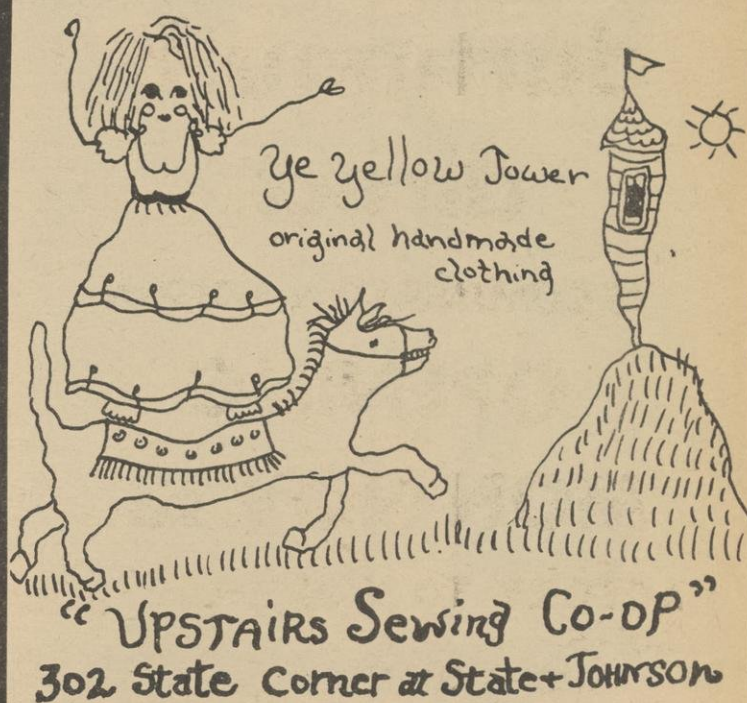 ye yellow Tower
original handmade
clothing
"UPSTAIRS Sewing CO-OP"
302 State Corner at State + JOHNSON